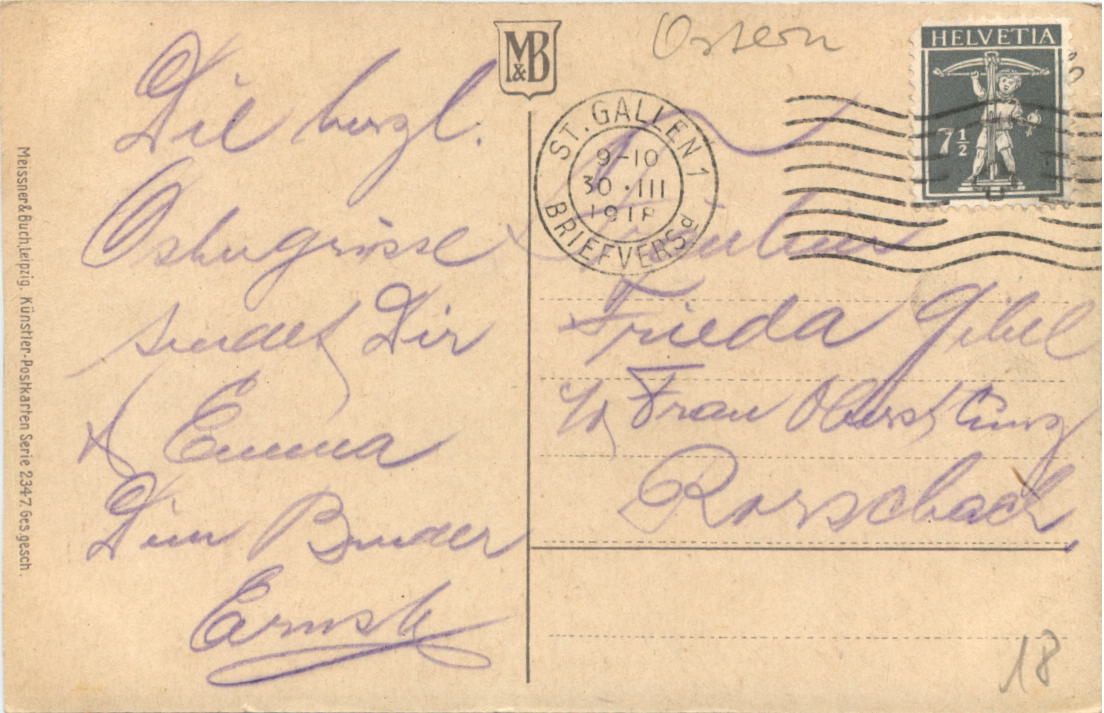 M&B
Ostern
HELVETIA
7½
ST. GALLEN 1
9-10
30·III
1918
BRIEFVERSD
Die herzl.
Ostergrüsse
sendet Dir
& Emma
Dein Bruder
Ernst
Fräulein
Frieda Gibel
Frau Oberst
Rorschach
18
Meissner & Buch, Leipzig. Künstler-Postkarten Serie 2347. Ges. gesch.